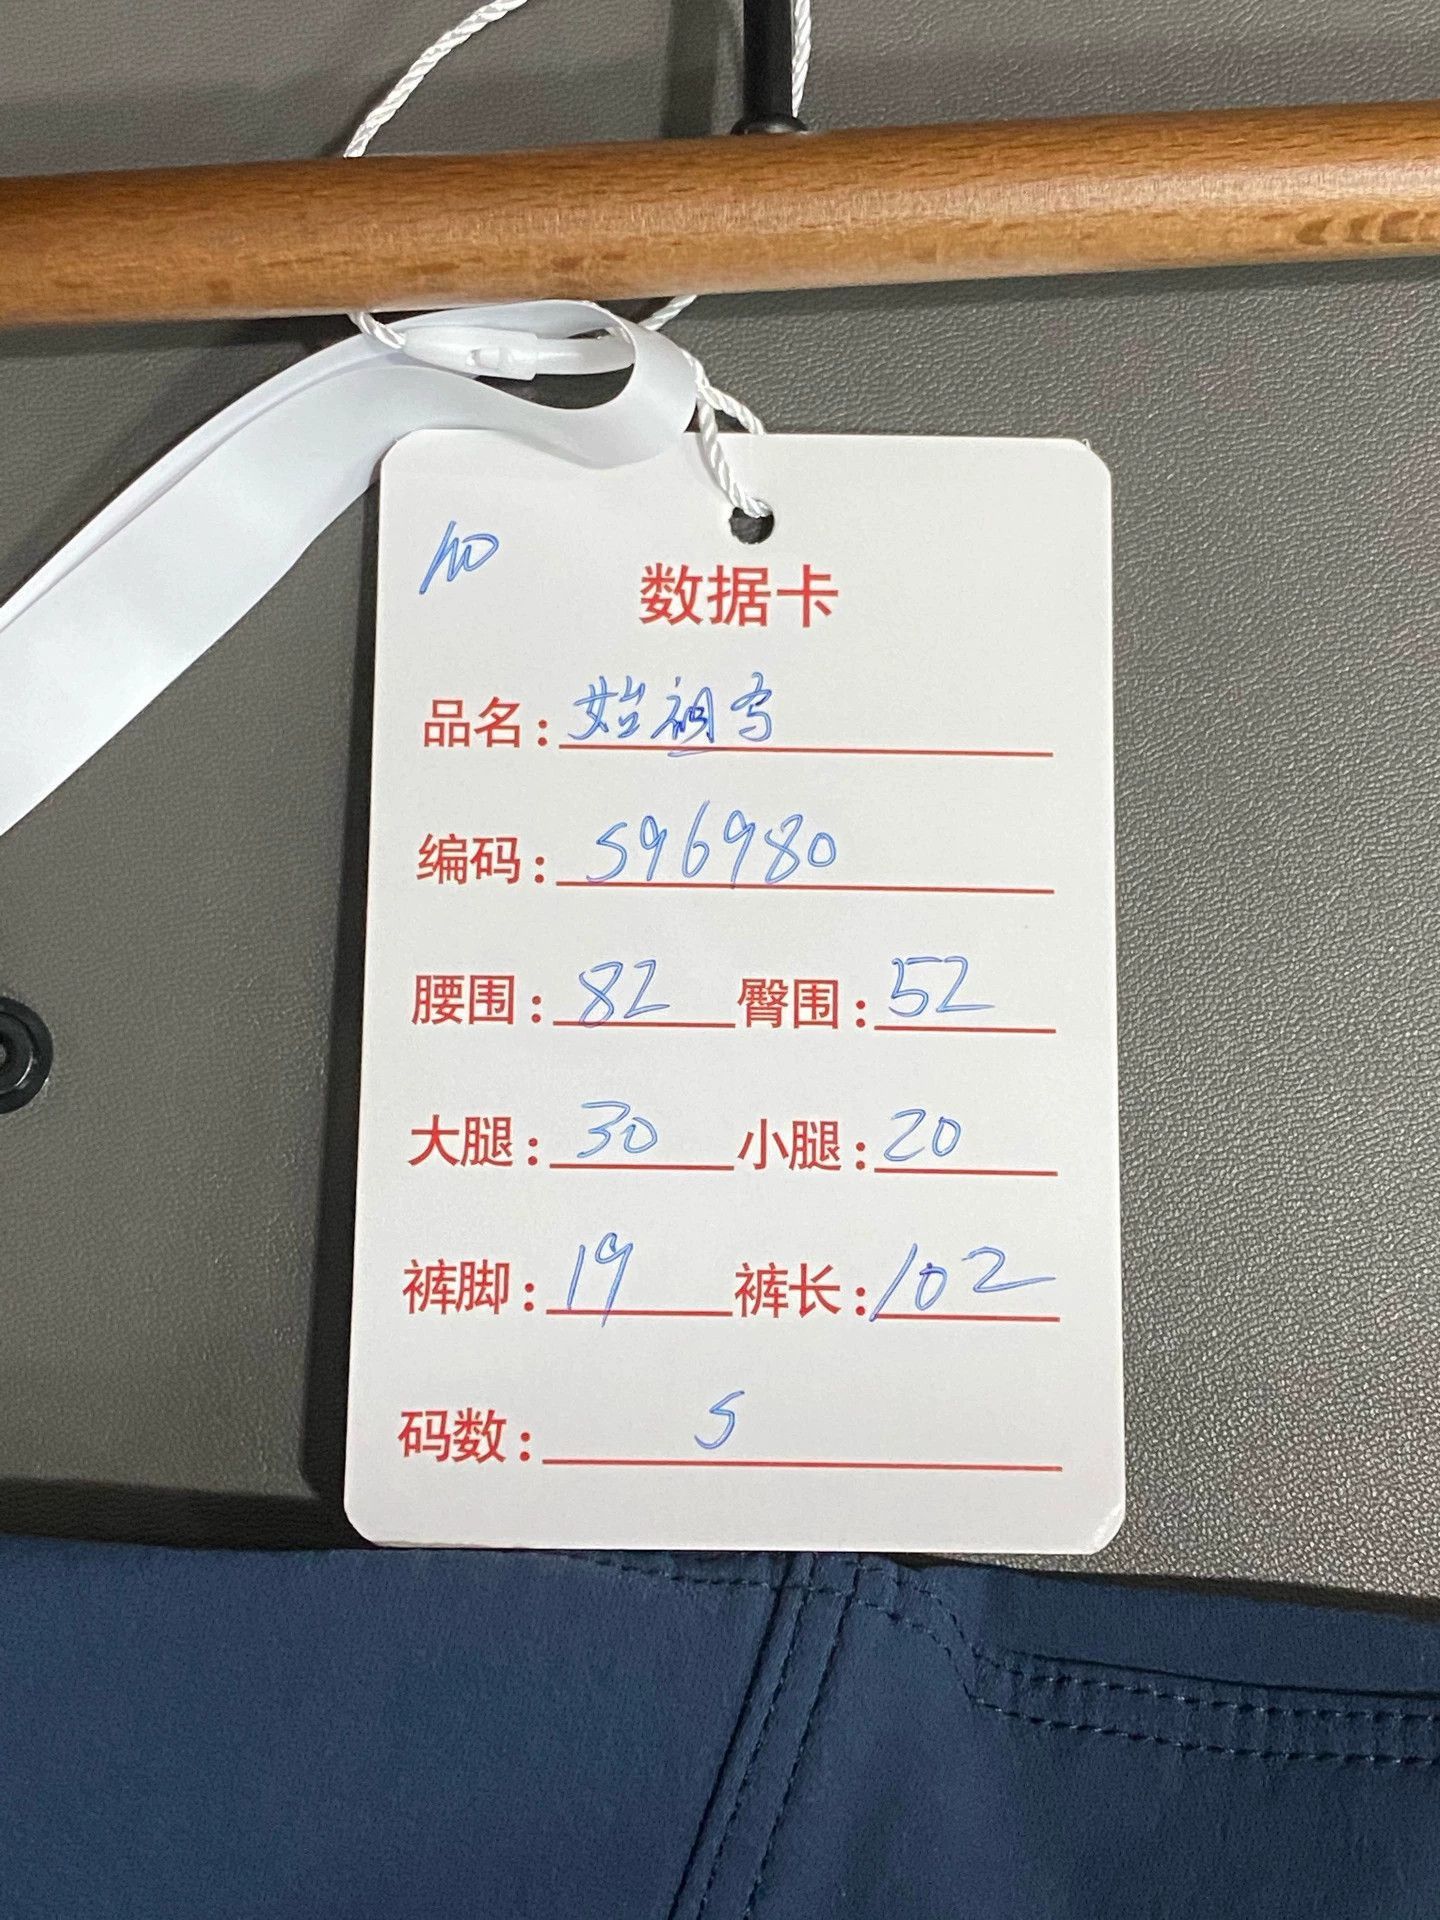 数据卡
品名：始祖鸟
编码：596980
腰围：82 臀围：52
大腿：30 小腿：20
裤脚：19 裤长：102
码数：S